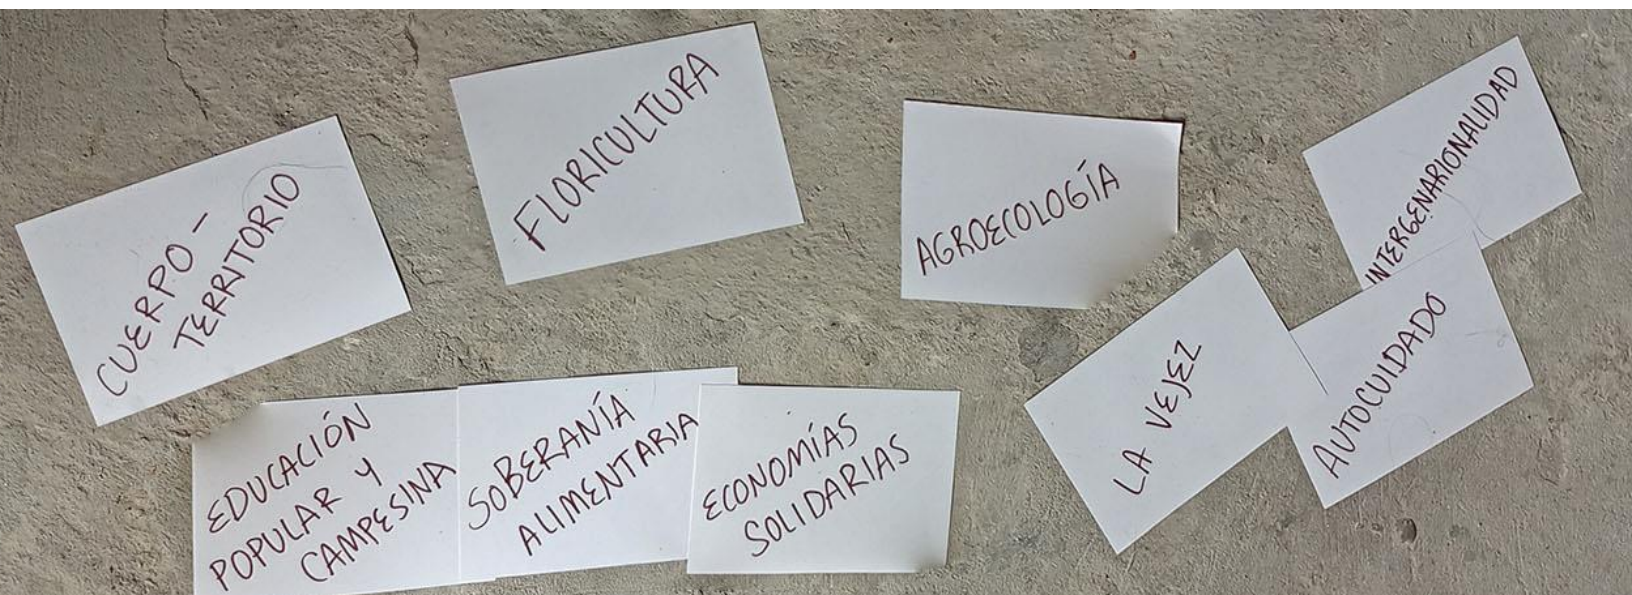 CUERPO -
TERRITORIO
FLORICULTURA
AGROECOLOGÍA
INTERGENARIONALIDAD
EDUCACIÓN
POPULAR Y
CAMPESINA
SOBERANÍA
ALIMENTARIA
ECONOMÍAS
SOLIDARIAS
LA VEJEZ
AUTOCUIDADO